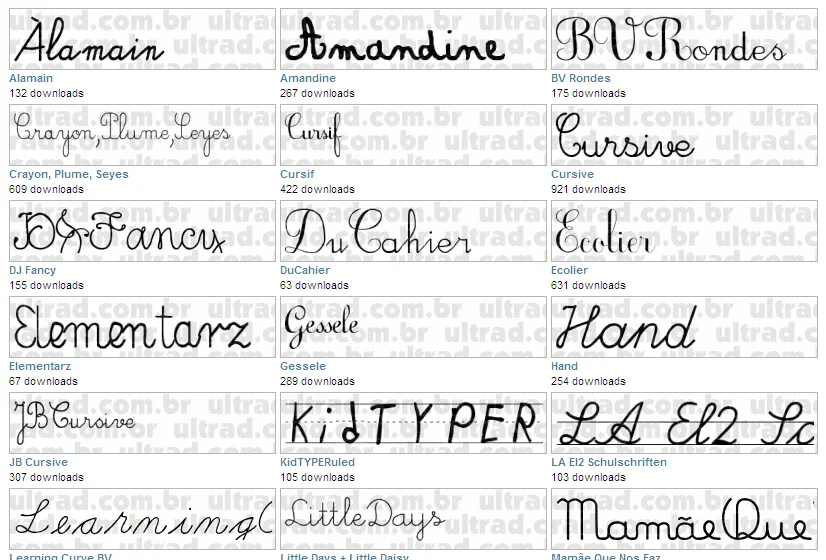 Alamain Amandine BV Rondes
Alamain Amandine BV Rondes
132 downloads 267 downloads 175 downloads
Crayon,Plume,Seyes Cursif Cursive
Crayon, Plume, Seyes Cursif Cursive
609 downloads 422 downloads 921 downloads
DJ Fancy DuCahier Ecolier
DJ Fancy DuCahier Ecolier
155 downloads 63 downloads 631 downloads
Elementarz Gessele Hand
Elementarz Gessele Hand
67 downloads 289 downloads 254 downloads
JB Cursive KidTYPER LA El2 Sc
JB Cursive KidTYPERuled LA El2 Schulschriften
307 downloads 105 downloads 103 downloads
Learning LittleDays MamãeQue
Learning Curve BV Little Days + Little Daisy Mamãe Que Nos Faz